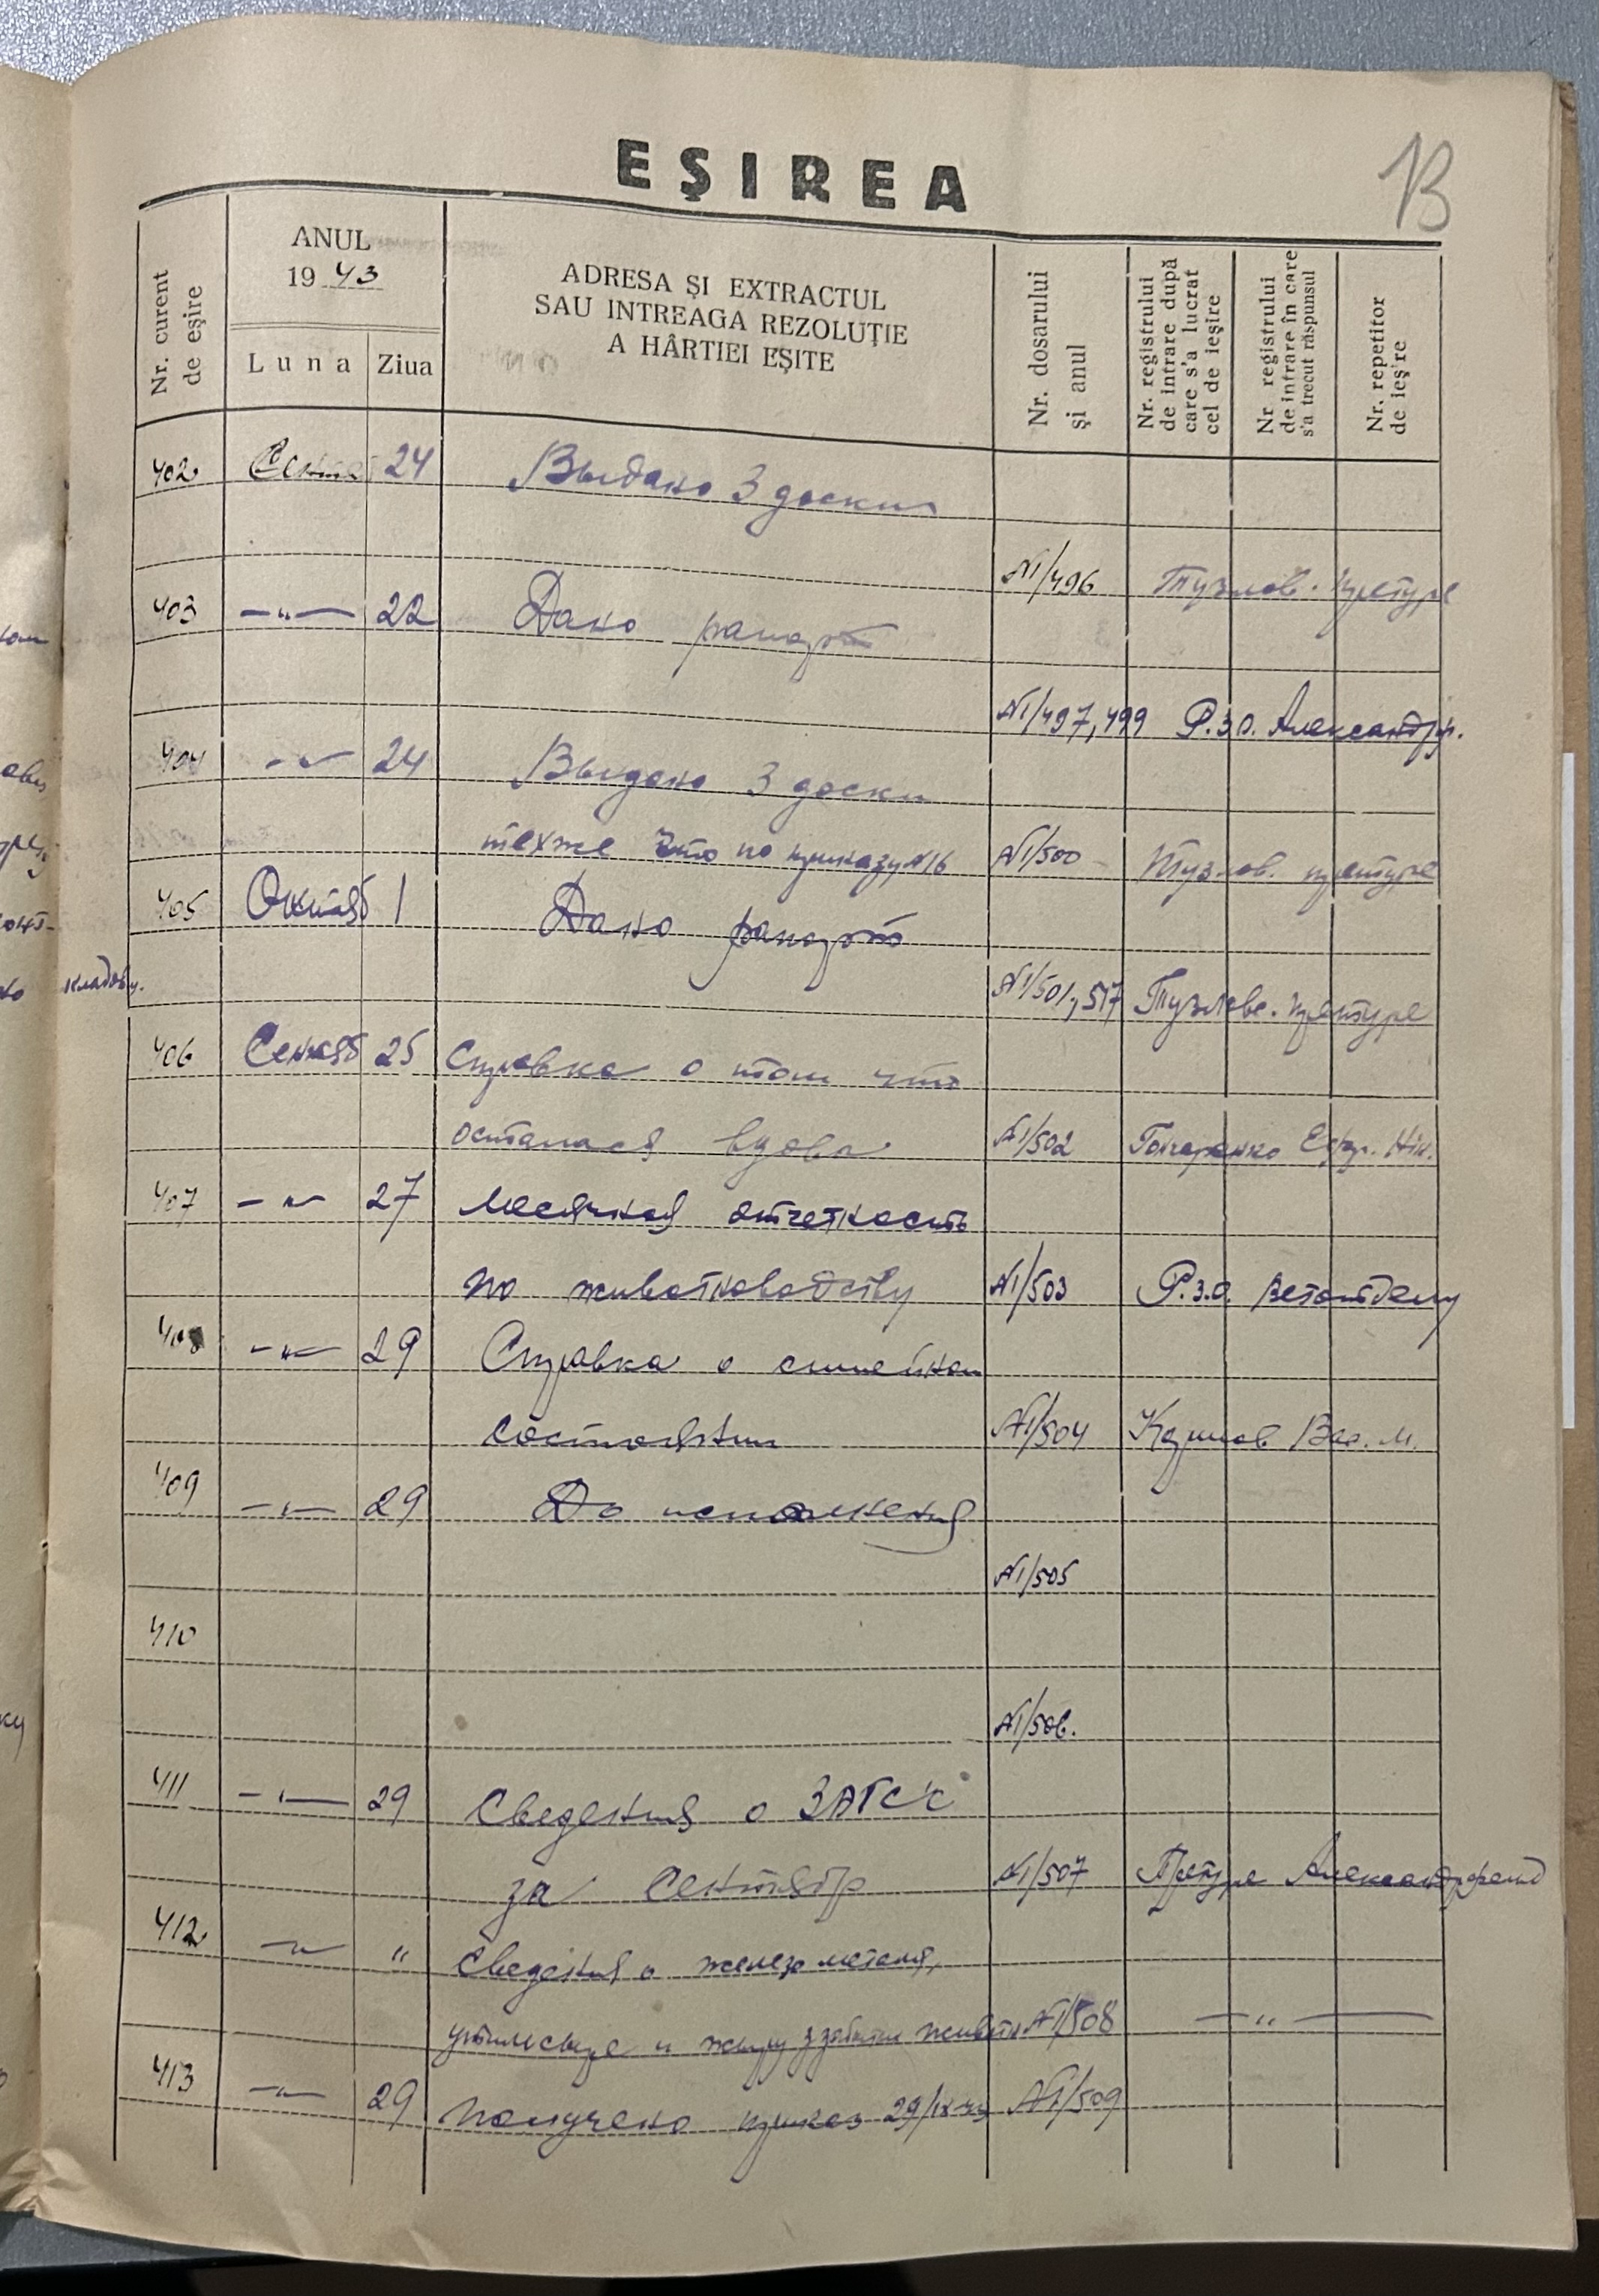 EŞIREA
13
Nr. curent de eşire
ANUL
19 43
Luna
Ziua
ADRESA ŞI EXTRACTUL
SAU INTREAGA REZOLUŢIE
A HÂRTIEI EŞITE
Nr. dosarului
şi anul
Nr. registrului
de intrare după
care s'a lucrat
cel de ieşire
Nr. registrului
de intrare în care
s'a trecut răspunsul
Nr. repetitor
de ieş're
402 24 Выдано 3 доски
№1/496
403 —"— 22 Дано рапорт
№1/497,499 Р.З.О. Александр.
404 —"— 24 Выдано 3 доски
техже что по приказу №16 №1/500 Тузлов. претуре
405 Октяб 1 Дано рапорт
№1/501,517 претуре
406 Сентяб 25 Справка о том что
осталася вдова №1/502 Гончаренко
407 —"— 27 Месячная отчетность
по животноводству №1/503 Р.З.О. Ветотделу
408 —"— 29 Справка о
состоянии №1/504 Вас. М.
409 —"— 29 До исполнения
№1/505
410
№1/506.
411 —"— 29 Сведения о ЗАГС'е
за Сентябр №1/507 Претуре
412 —"— " Сведения о железо
и №1/508 —"—
413 —"— 29 Получено приказ 29/IX-43 №1/509
кладову.